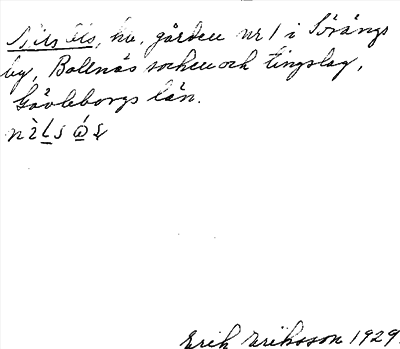 Nils Ols, hu. gården nr 1 i Sörängs
by, Bollnäs socken och tingslag,
Gävleborgs län.
Erik Eriksson 1929.